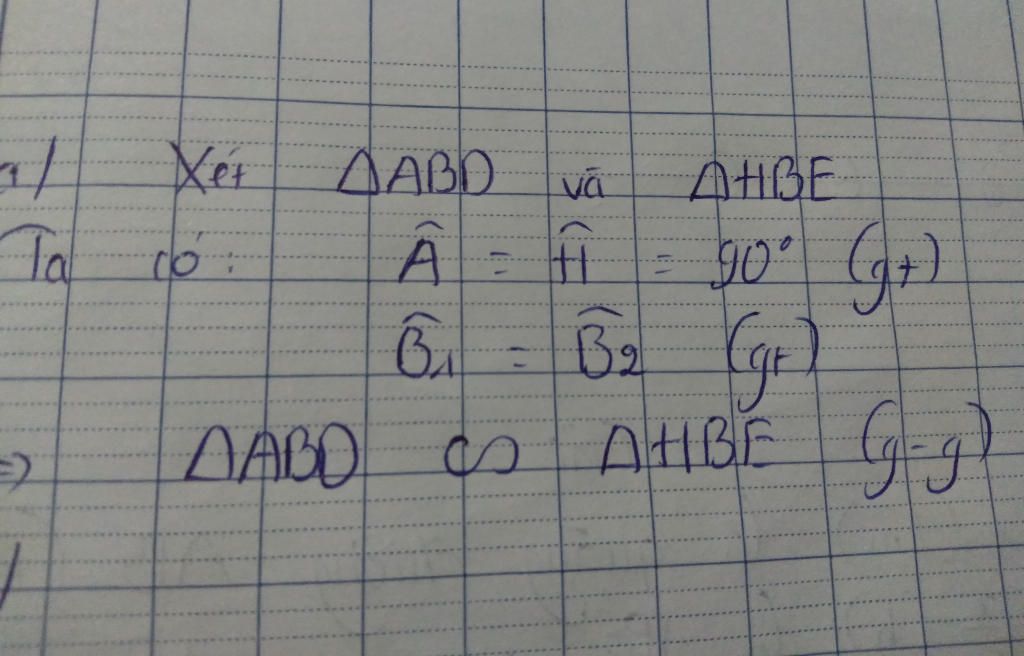 a/ Xét ΔABD và ΔHBE
Ta có: Â = Ĥ = 90° (gt)
B̂1 = B̂2 (gt)
=> ΔABD ∽ ΔHBE (g-g)
/